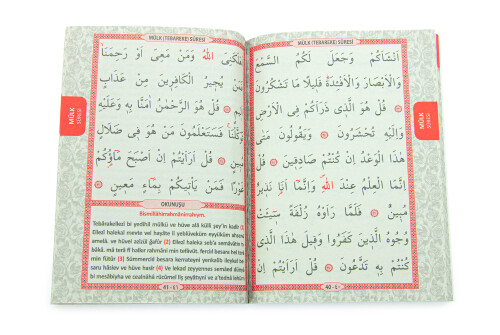 MÜLK (TEBAREKE) SÛRESİ
اَنْشَاَكُمْ وَجَعَلَ لَكُمُ السَّمْعَ
وَالْاَبْصَارَ وَالْاَفْئِدَةَ قَلِيلًا مَا تَشْكُرُونَ
قُلْ هُوَ الَّذِي ذَرَاَكُمْ فِي الْاَرْضِ
وَاِلَيْهِ تُحْشَرُونَ وَيَقُولُونَ مَتٰى
هٰذَا الْوَعْدُ اِنْ كُنْتُمْ صَادِقِينَ قُلْ
اِنَّمَا الْعِلْمُ عِنْدَ اللّٰهِ وَاِنَّمَا اَنَا نَذِيرٌ
مُبِينٌ فَلَمَّا رَاَوْهُ زُلْفَةً سِيئَتْ
وُجُوهُ الَّذِينَ كَفَرُوا وَقِيلَ هٰذَا الَّذِي
كُنْتُمْ بِهِ تَدَّعُونَ قُلْ اَرَاَيْتُمْ اِنْ
40 - ٤٠
MÜLK
SÛRESİ
MÜLK (TEBAREKE) SÛRESİ
اَهْلَكَنِيَ اللّٰهُ وَمَنْ مَعِيَ اَوْ رَحِمَنَا
فَمَنْ يُجِيرُ الْكَافِرِينَ مِنْ عَذَابٍ
اَلِيمٍ قُلْ هُوَ الرَّحْمٰنُ اٰمَنَّا بِهِ وَعَلَيْهِ
تَوَكَّلْنَا فَسَتَعْلَمُونَ مَنْ هُوَ فِي ضَلَالٍ
مُبِينٍ قُلْ اَرَاَيْتُمْ اِنْ اَصْبَحَ مَاؤُكُمْ
غَوْرًا فَمَنْ يَأْتِيكُمْ بِمَاءٍ مَعِينٍ
OKUNUŞU
Bismillâhirrahmânirrahîym.
Tebârakellezî bi yedihil mülkü ve hüve alâ külli şey'in kadîr (1)
Ellezî halekal mevte vel hayâte li yeblüveküm eyyüküm ahsenü
amelâ, ve hüvel azîzül ğafûr (2) Ellezî haleka seb'a semâvâtin
tıbâkâ, mâ terâ fî halkır rahmâni min tefâvüt, fercııl besara hel terâ
min fütûr (3) Sümmerciıl besara kerrateyni yenkalib ileykel be-
saru hâsiev ve hüve hasîr (4) Ve lekad zeyyennes semâed dünyâ
bi mesâbîyha ve cealnâhâ rücûmel liş şeyâtıyni ve a'tednâ lehüm
41 - ٤١
MÜLK
SÛRESİ